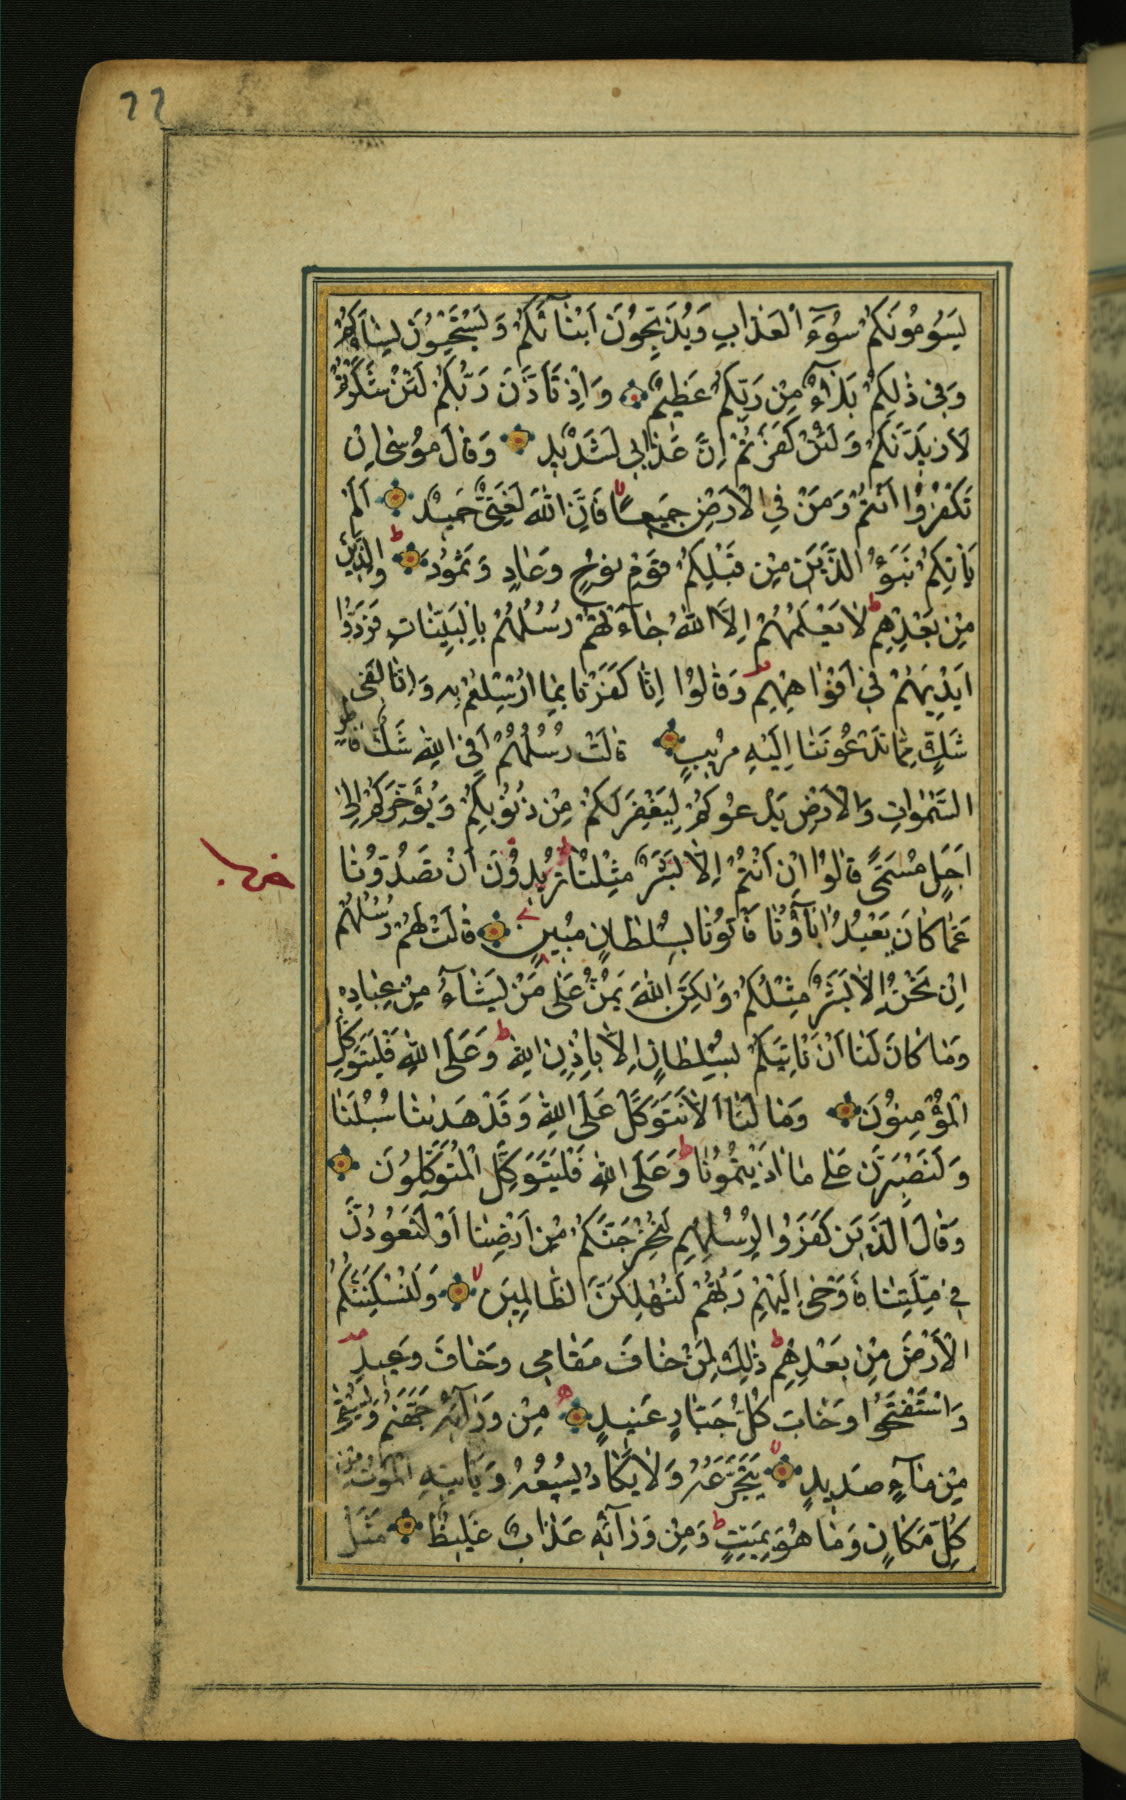 22
يَسُومُونَكُمْ سُوٓءَ الْعَذَابِ وَيُذَبِّحُونَ اَبْنَآئَكُمْ وَيَسْتَحْيُونَ نِسَآءَكُمْ
وَفِى ذٰلِكُمْ بَلَآءٌ مِنْ رَبِّكُمْ عَظِيمٌ وَاِذْ تَاَذَّنَ رَبُّكُمْ لَئِنْ شَكَرْتُمْ
لَاَزِيدَنَّكُمْ وَلَئِنْ كَفَرْتُمْ اِنَّ عَذَابِى لَشَدِيدٌ وَقَالَ مُوسٰى اِنْ
تَكْفُرُوْا اَنْتُمْ وَمَنْ فِى الْاَرْضِ جَمِيعًا فَاِنَّ اللّٰهَ لَغَنِىٌّ حَمِيدٌ اَلَمْ
يَاْتِكُمْ نَبَؤُ الَّذِينَ مِنْ قَبْلِكُمْ قَوْمِ نُوحٍ وَعَادٍ وَثَمُودَ وَالَّذِينَ
مِنْ بَعْدِهِمْ لَا يَعْلَمُهُمْ اِلَّا اللّٰهُ جَآءَتْهُمْ رُسُلُهُمْ بِالْبَيِّنَاتِ فَرَدُّوْا
اَيْدِيَهُمْ فِى اَفْوَاهِهِمْ وَقَالُوْا اِنَّا كَفَرْنَا بِمَا اُرْسِلْتُمْ بِهِ وَاِنَّا لَفِى
شَكٍّ مِمَّا تَدْعُونَنَا اِلَيْهِ مُرِيبٍ قَالَتْ رُسُلُهُمْ اَفِى اللّٰهِ شَكٌّ فَاطِرِ
السَّمٰوَاتِ وَالْاَرْضِ يَدْعُوكُمْ لِيَغْفِرَ لَكُمْ مِنْ ذُنُوبِكُمْ وَيُؤَخِّرَكُمْ اِلٰى
اَجَلٍ مُسَمًّى قَالُوْا اِنْ اَنْتُمْ اِلَّا بَشَرٌ مِثْلُنَا تُرِيدُونَ اَنْ تَصُدُّونَا
عَمَّا كَانَ يَعْبُدُ اٰبَآؤُنَا فَاْتُونَا بِسُلْطَانٍ مُبِينٍ قَالَتْ لَهُمْ رُسُلُهُمْ
اِنْ نَحْنُ اِلَّا بَشَرٌ مِثْلُكُمْ وَلٰكِنَّ اللّٰهَ يَمُنُّ عَلٰى مَنْ يَشَآءُ مِنْ عِبَادِهِ
وَمَا كَانَ لَنَا اَنْ نَاْتِيَكُمْ بِسُلْطَانٍ اِلَّا بِاِذْنِ اللّٰهِ وَعَلَى اللّٰهِ فَلْيَتَوَكَّلِ
الْمُؤْمِنُونَ وَمَا لَنَا اَلَّا نَتَوَكَّلَ عَلَى اللّٰهِ وَقَدْ هَدٰينَا سُبُلَنَا
وَلَنَصْبِرَنَّ عَلٰى مَا اٰذَيْتُمُونَا وَعَلَى اللّٰهِ فَلْيَتَوَكَّلِ الْمُتَوَكِّلُونَ
وَقَالَ الَّذِينَ كَفَرُوا لِرُسُلِهِمْ لَنُخْرِجَنَّكُمْ مِنْ اَرْضِنَا اَوْ لَتَعُودُنَّ
فِى مِلَّتِنَا فَاَوْحٰى اِلَيْهِمْ رَبُّهُمْ لَنُهْلِكَنَّ الظَّالِمِينَ وَلَنُسْكِنَنَّكُمُ
الْاَرْضَ مِنْ بَعْدِهِمْ ذٰلِكَ لِمَنْ خَافَ مَقَامِى وَخَافَ وَعِيدِ
وَاسْتَفْتَحُوا وَخَابَ كُلُّ جَبَّارٍ عَنِيدٍ مِنْ وَرَآئِهِ جَهَنَّمُ وَيُسْقٰى
مِنْ مَآءٍ صَدِيدٍ يَتَجَرَّعُهُ وَلَا يَكَادُ يُسِيغُهُ وَيَاْتِيهِ الْمَوْتُ مِنْ
كُلِّ مَكَانٍ وَمَا هُوَ بِمَيِّتٍ وَمِنْ وَرَآئِهِ عَذَابٌ غَلِيظٌ مَثَلُ